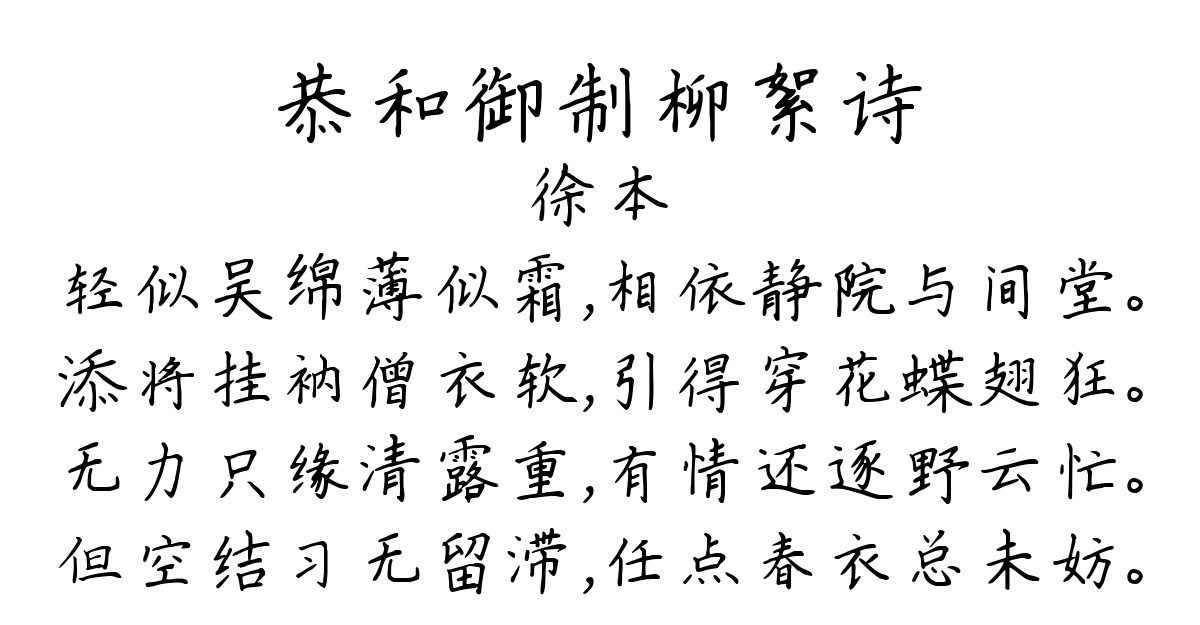 恭和御制柳絮诗
徐本
轻似吴绵薄似霜,相依静院与间堂。
添将挂衲僧衣软,引得穿花蝶翅狂。
无力只缘清露重,有情还逐野云忙。
但空结习无留滞,任点春衣总未妨。